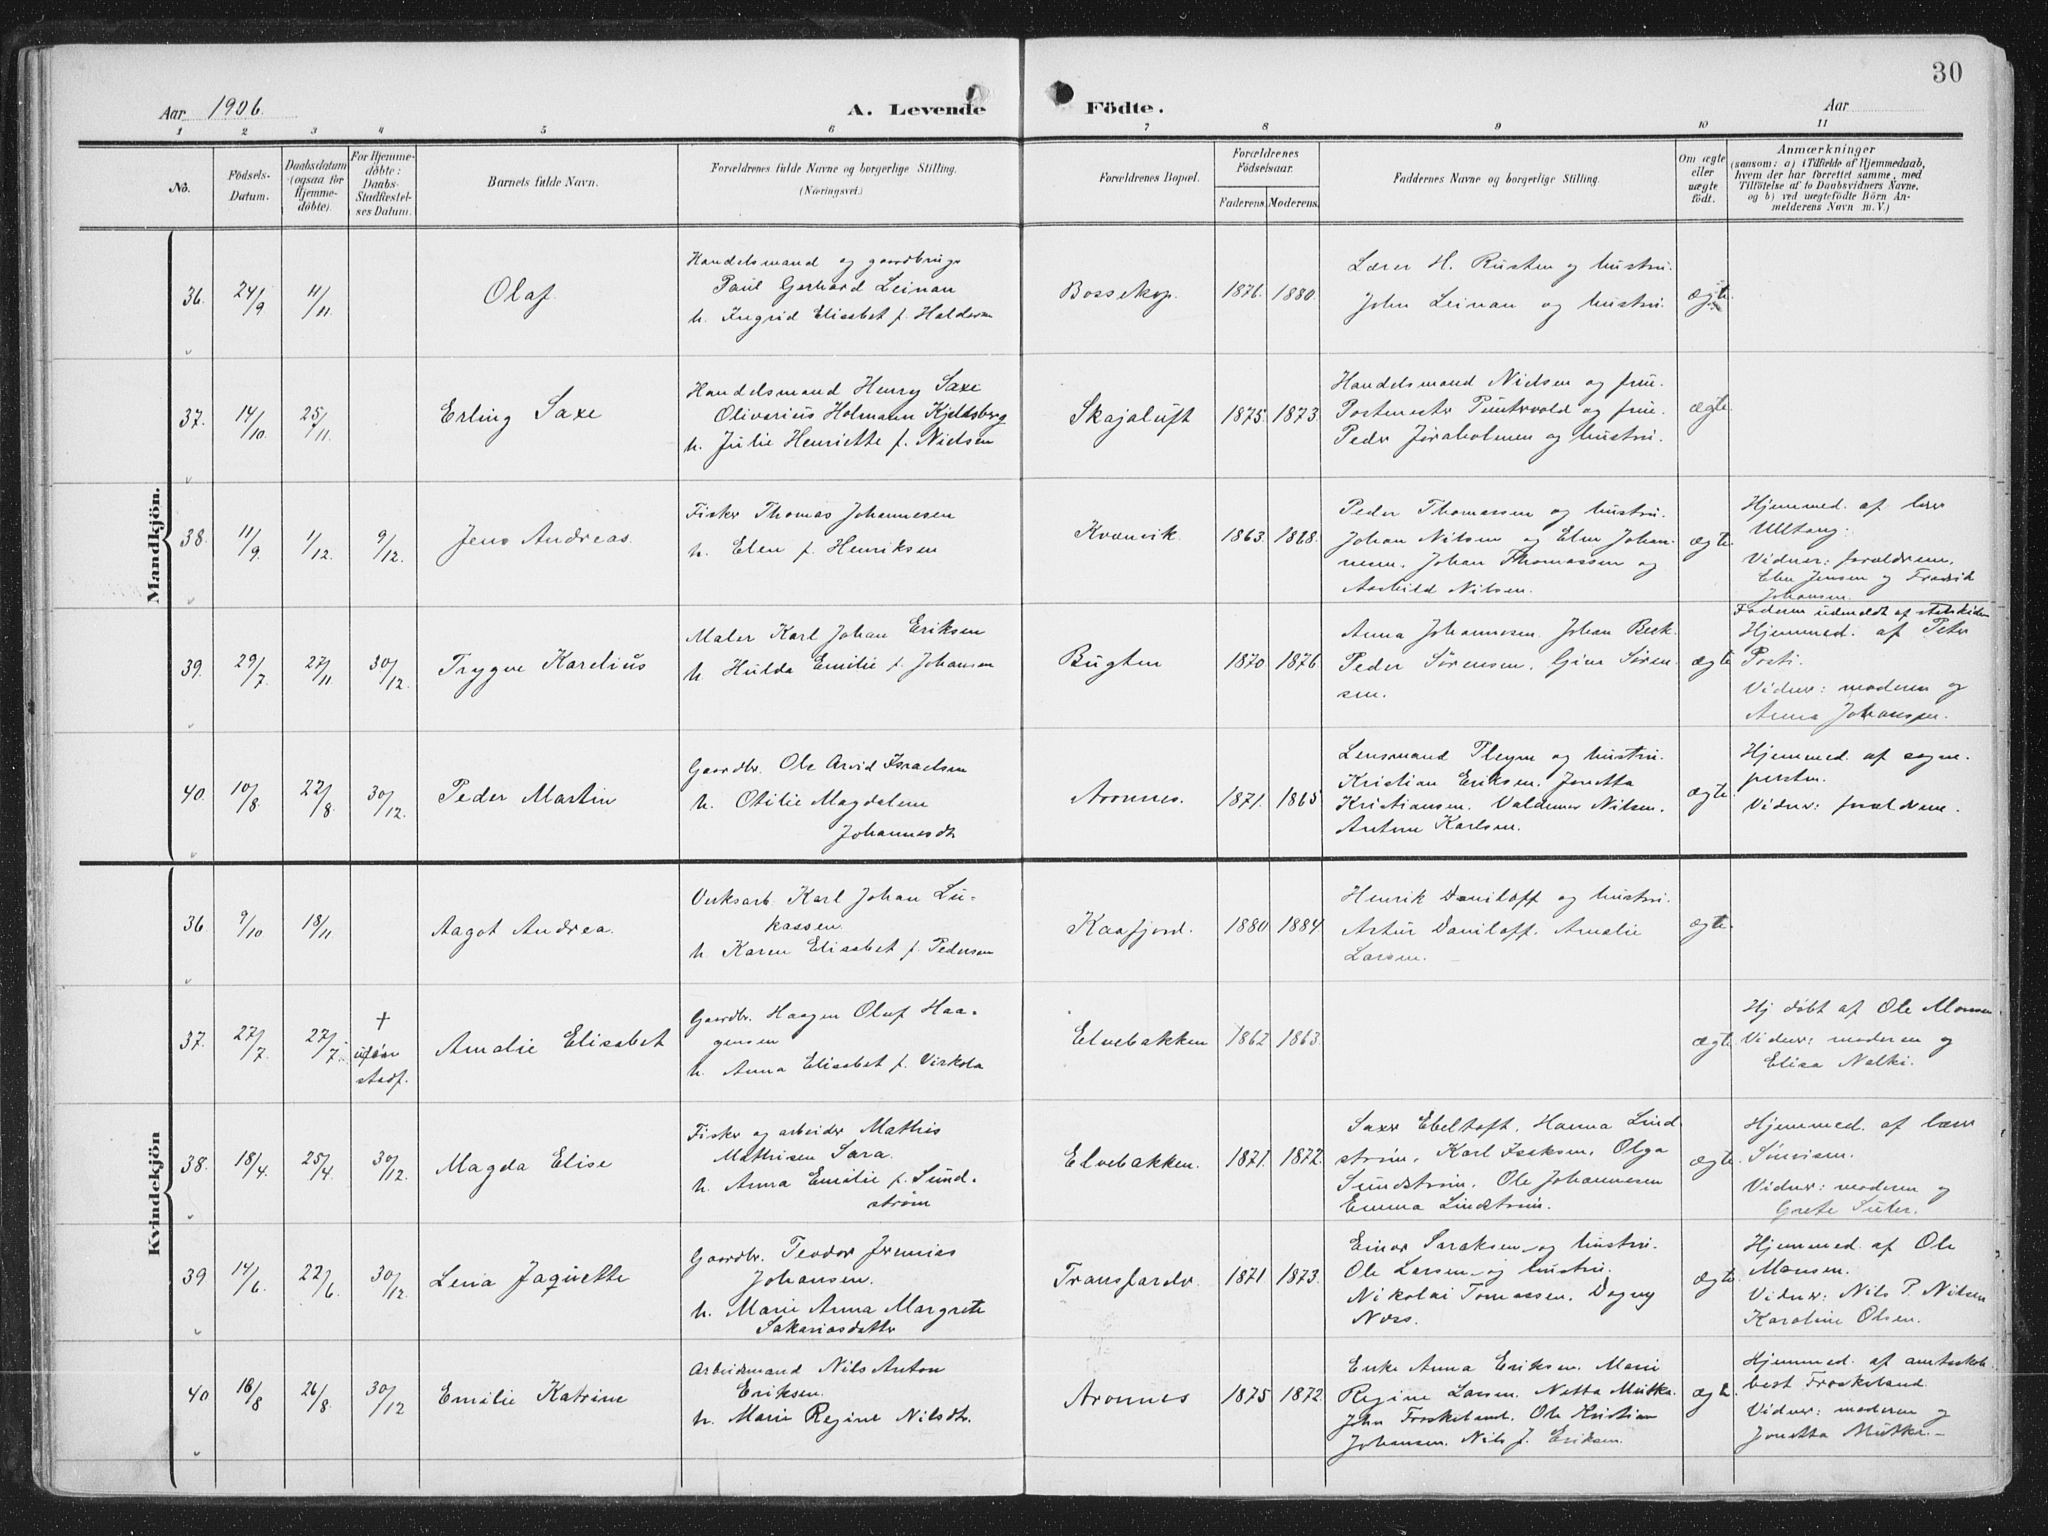 30
Aar 1906.
A. Levende Födte.
Aar
1 2 3 4 5 6 7 8 9 10 11
No.
Födsels-
Datum.
Daabsdatum
(ogsaa for
Hjemme-
döbte).
For Hjemme-
döbte:
Daabs-
Stadfæstel-
ses Datum.
Barnets fulde Navn.
Forældrenes fulde Navne og borgerlige Stilling.
(Næringsvei.)
Forældrenes Bopæl.
Forældrenes
Födselsaar.
Faderens. Moderens.
Faddernes Navne og borgerlige Stilling.
Om ægte
eller
uægte
födt.
Anmærkninger
(saasom: a) i Tilfælde af Hjemmedaab,
hvem der har forrettet samme, med
Tilföielse af to Daabsvidners Navne,
og b) ved uægtefödte Börn An-
melderens Navn m. V.)
Mandkjön.
36. 24/9 11/11. Olaf.
Handelsmand og gaardbruger
Paul Gerhard Leinan
h. Ingrid Elisabet f. Haldorsen
Bossekop. 1876. 1880.
Lærer H. Rusten og hustru.
John Leinan og hustru.
ægte.
37. 14/10. 25/11. Erling Saxe
Handelsmand Henry Saxe
Olivarius Holmann Kjeldsberg
h. Julie Henriette f. Nielsen
Skajaluft 1875. 1873.
Handelsmand Nielsen og frue.
Postmester og frue.
Peder Joraholmen og hustru.
ægte.
38. 11/9. 1/12. 9/12. Jens Andreas.
Fisker Thomas Johannesen
h. Elen f. Henriksen
Kvænvik. 1863. 1868.
Peder Thomassen og hustru.
Johan Nilsen og Elen Johan-
nesen. Johan Thomassen og
Aashild Nilsen.
ægte.
Hjemmed. af lærer
Ulltang.
Vidner: forældrene.
Elen Jensen og
Johansen.
39. 29/7. 27/11. 30/12. Trygve Karelius
Maler Karl Johan Eriksen
h. Hulda Emilie f. Johansen
Bugten 1870. 1876.
Anna Johannesen. Johan Beck.
Peder Sørensen. Gina Søren-
sen.
ægte
Faderen udmeldt af statskirken
Hjemmed. af Peter
Posti.
Vidner: moderen og
Anna Johansen.
40. 10/8. 22/8. 30/12. Peder Martin
Gaardbr. Ole Arvid Israelsen
h. Otilie Magdalene
Johannesdtr
Aronnes. 1871. 1865
Lensmand Pleym og hustru.
Kristian Eriksen. Jonetta
Kristiansen. Valdemar Nilsen.
Anton Karlsen.
ægte.
Hjemmed. af sogne-
presten.
Vidner: forældrene.
Kvindekjön
36 9/10 18/11. Aagot Andrea.
Verksarb. Karl Johan Lu-
kassen.
h. Karen Elisabet f. Pedersen
Kaafjord. 1880 1884.
Henrik Daniloff og hustru.
Artur Daniloff. Amalie
Larsen.
ægte.
37. 27/7. 27/7. †
før
stadf.
Amalie Elisabet
Gaardbr. Haagen Oluf Haa-
gensen
h. Anna Elisabet f. Virkola
Elvebakken 1862 1863.
ægte.
Hj. døbt af Ole Monsen
Vidner: moderen og
Elisa Nalki.
38. 18/4. 25/4. 30/12. Magda Elise
Fisker og arbeider Mathis
Mathisen Sara.
h. Anna Emilie f. Sund-
strøm
Elvebakken. 1871. 1872.
Saxe Ebeltoft. Hanna Lind-
strøm. Karl Isaksen. Olga
Sundstrøm. Ole Johannesen
Emma Lindstrøm.
ægte.
Hjemmed. af lærer
Simisen.
Vidner: moderen og
Grete Suter.
39 14/6. 22/6. 30/12. Lena Jaquette
Gaardbr. Teodor Jeremias
Johansen.
h. Marie Anna Margrete
Sakariasdatter
Transfarelv 1871. 1873.
Einar Saraksen og hustru.
Ole Larsen og hustru.
Nikolai Tomassen. Dagny
Næss.
ægte.
Hjemmed. af Ole
Monsen.
Vidner: Nils P. Nilsen
Karoline Olsen.
40 18/8 26/8. 30/12 Emilie Katrine
Arbeidsmand Nils Anton
Eriksen.
h. Marie Regine Nilsdtr.
Aronnes 1875 1872.
Enke Anna Eriksen. Marie
Regine Larsen. Netta Mutka.
John Froskeland. Ole Kristian
Johansen. Nils J. Eriksen.
ægte.
Hjemmed. af amtsskole-
best. Froskeland.
Vidner: moderen og
Jonetta Mutka.